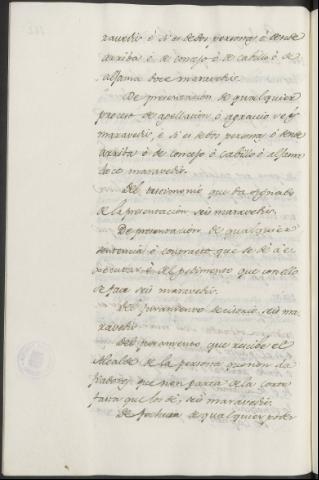 ravedis è si es de dos personas ò dende
arriba è de concejo è de cabildo è de
aljama doce maravedis.
De presentación de qualquier
proceso de apellacion ò agravio seis
maravedis, è si es de dos personas ò dende
arriba ò de concejo ò cabildo ò aljama
doce maravedis.
Del testimonio que da signado
de la presentacion seis maravedis.
De presentacion de qualquier
sentencia ò contracto que se dè à e-
xecutar, è del pedimento que con ello
se face seis maravedis.
Del juramento decisorio seis ma-
ravedis
Del juramento que recibe el
Alcalde de la persona que non da
fiadores que nien parta de la corte
fasta que los dè, seis maravedis.
De fechura de qualquier poder